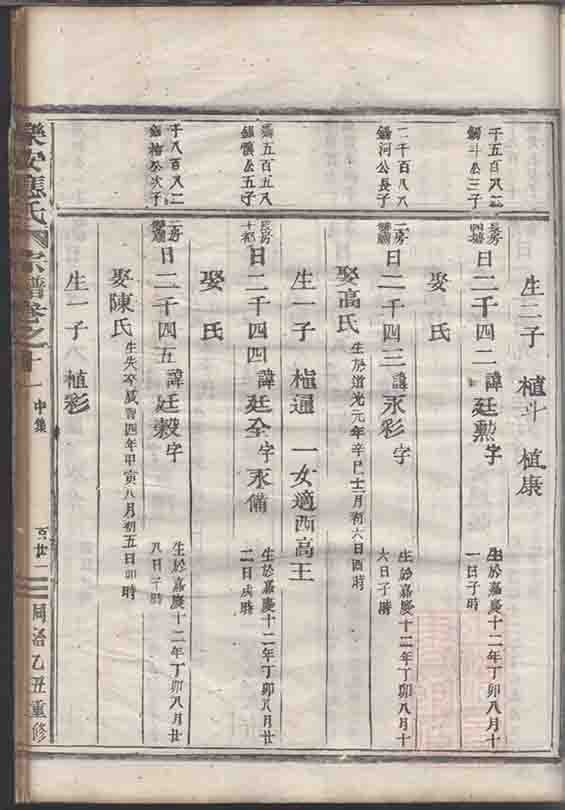 生二子 植斗 植康
千五百八二
錫斗公三子
長房
四塘
日二千四二 諱廷勲 字
生於嘉慶十二年丁卯八月十
一日子時
娶 氏
二千百八八
錫河公長子
二房
日二千四三 諱永彩 字
生於嘉慶十二年丁卯八月十
六日子時
娶高氏 生於道光元年辛巳十二月初六日酉時
生一子 植通 一女適西高王
五百五八
錫慎公五子
長房
日二千四四 諱廷全 字永備
生於嘉慶十二年丁卯八月廿
二日戌時
娶 氏
千八百八二
錫裕公次子
二房
日二千四五 諱廷榖 字
生於嘉慶十二年丁卯八月廿
八日子時
娶陳氏 生失卒咸豐四年甲寅八月初五日卯時
生一子 植彩
樂安 氏宗譜卷之十一 中集 百廿一 同治乙丑重修